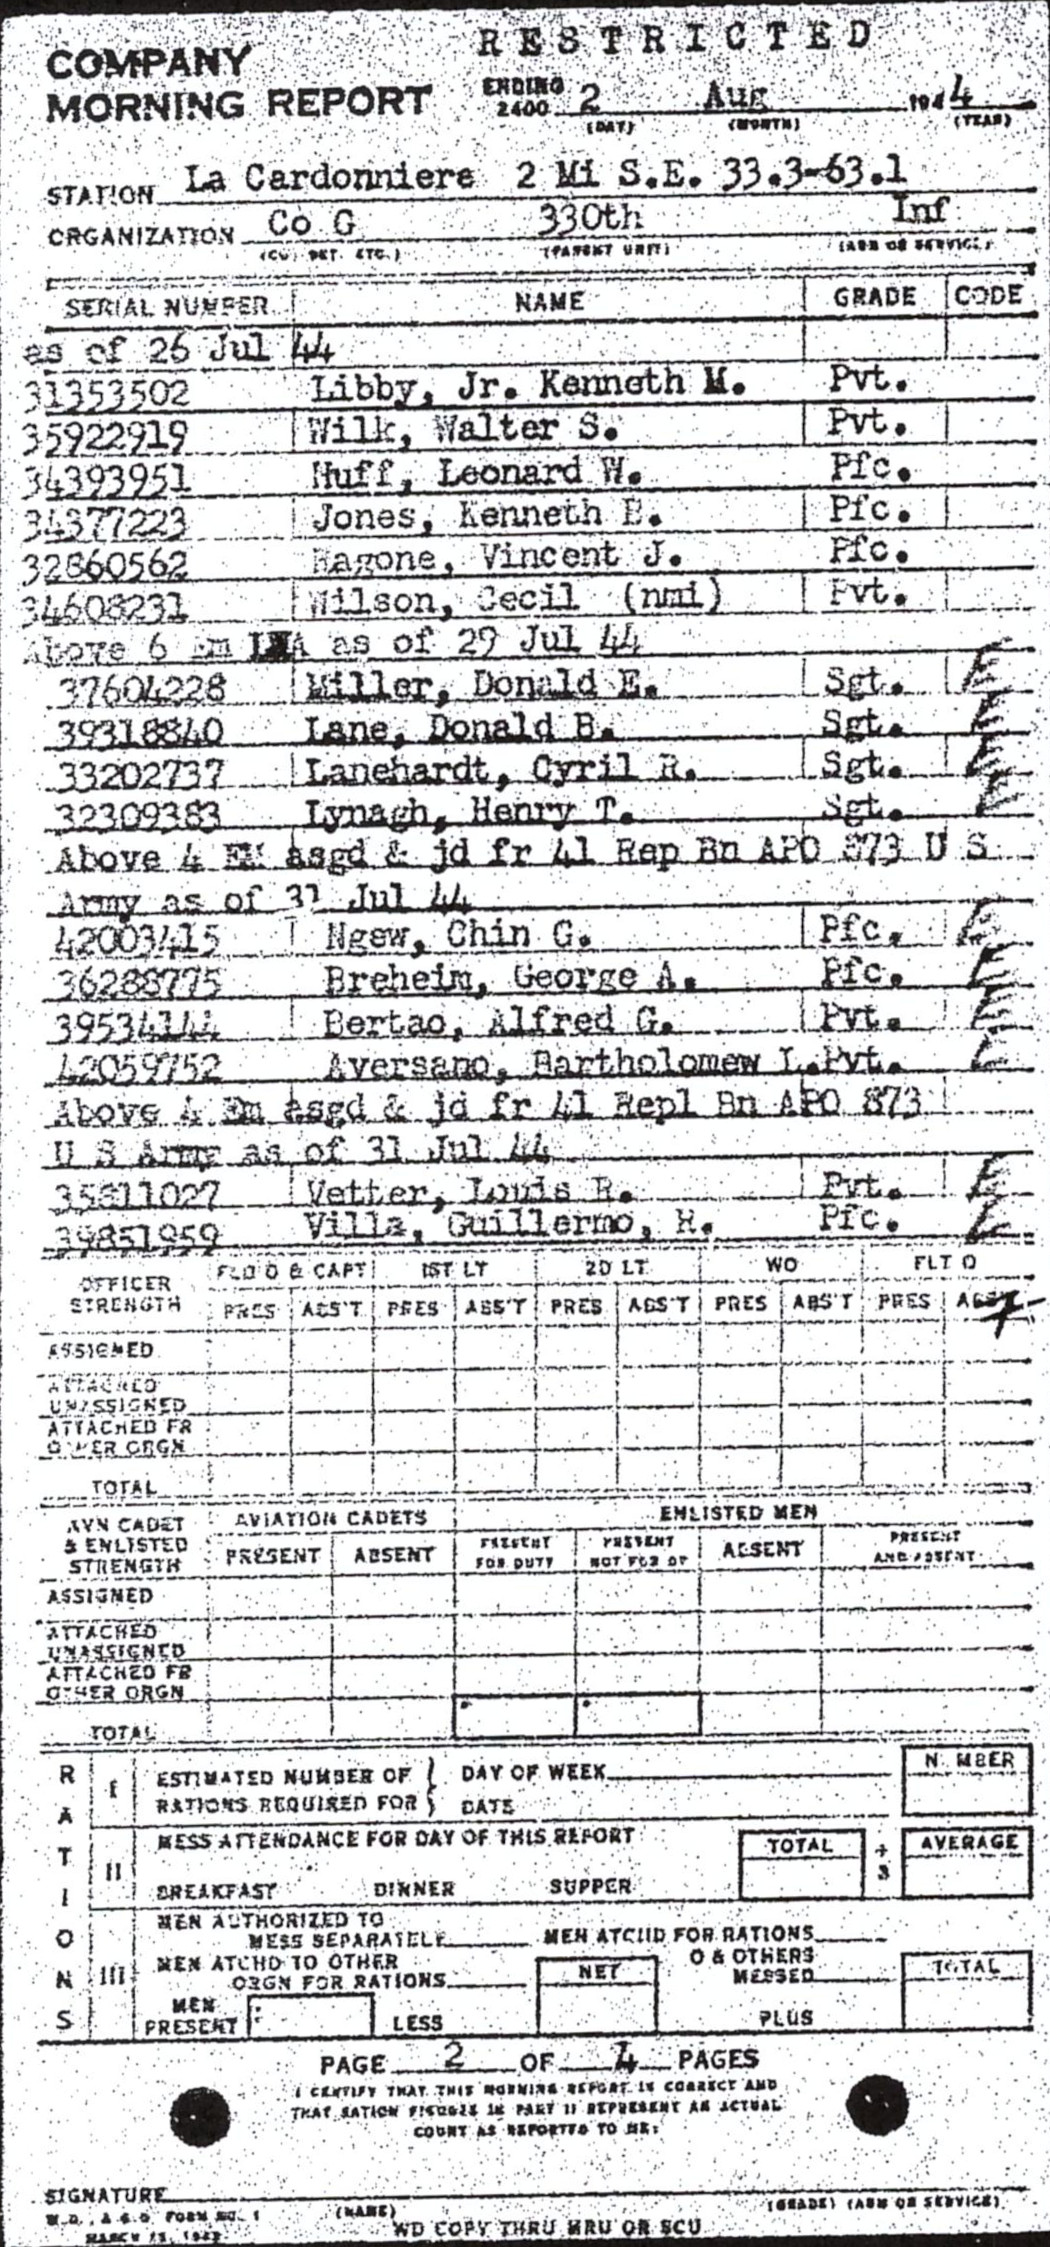 RESTRICTED
COMPANY
MORNING REPORT
ENDING 2400 2 Aug 1944
(DAY) (MONTH) (YEAR)
STATION La Cardonniere 2 Mi S.E. 33.3-63.1
ORGANIZATION Co G 330th Inf
(CO, DET. ETC.) (PARENT UNIT) (ARM OR SERVICE)
SERIAL NUMBER NAME GRADE CODE
as of 26 Jul 44
31353502 Libby, Jr. Kenneth M. Pvt.
35922919 Wilk, Walter S. Pvt.
34393951 Huff, Leonard W. Pfc.
34377223 Jones, Kenneth E. Pfc.
32860562 Ragone, Vincent J. Pfc.
34608231 Wilson, Cecil (nmi) Pvt.
Above 6 Em as of 29 Jul 44
37604228 Miller, Donald E. Sgt.
39318840 Lane, Donald B. Sgt.
33202737 Lanehardt, Cyril R. Sgt.
32309383 Lynagh, Henry T. Sgt.
Above 4 EM asgd & jd fr 41 Rep Bn APO 873 U S
Army as of 31 Jul 44
42003415 Ngew, Chin G. Pfc.
36288775 Breheim, George A. Pfc.
39534144 Bertao, Alfred G. Pvt.
42059752 Aversano, Bartholomew L. Pvt.
Above 4 Em asgd & jd fr 41 Repl Bn APO 873
U S Army as of 31 Jul 44
35811027 Vetter, Louis R. Pvt.
39851959 Villa, Guillermo, H. Pfc.
OFFICER STRENGTH FLD O & CAPT 1ST LT 2D LT WO FLT O
PRES ABS'T PRES ABS'T PRES ABS'T PRES ABS'T PRES ABS'T
ASSIGNED
ATTACHED UNASSIGNED
ATTACHED FR OTHER ORGN
TOTAL
AVN CADET & ENLISTED STRENGTH AVIATION CADETS ENLISTED MEN
PRESENT ABSENT PRESENT FOR DUTY PRESENT NOT FOR DY ABSENT PRESENT AND ABSENT
ASSIGNED
ATTACHED UNASSIGNED
ATTACHED FR OTHER ORGN
TOTAL
RATIONS
I ESTIMATED NUMBER OF RATIONS REQUIRED FOR DAY OF WEEK NUMBER
DATE
II MESS ATTENDANCE FOR DAY OF THIS REPORT TOTAL ÷ 3 AVERAGE
BREAKFAST DINNER SUPPER
III MEN AUTHORIZED TO MESS SEPARATELY MEN ATCHD FOR RATIONS
MEN ATCHD TO OTHER ORGN FOR RATIONS NET O & OTHERS MESSED TOTAL
MEN PRESENT LESS PLUS
PAGE 2 OF 4 PAGES
I CERTIFY THAT THIS MORNING REPORT IS CORRECT AND
THAT RATION FIGURES IN PART II REPRESENT AN ACTUAL
COUNT AS REPORTED TO ME:
SIGNATURE
(NAME) (GRADE) (ARM OR SERVICE)
W.D., A.G.O. FORM NO. 1
MARCH 15, 1943
WD COPY THRU MRU OR SCU